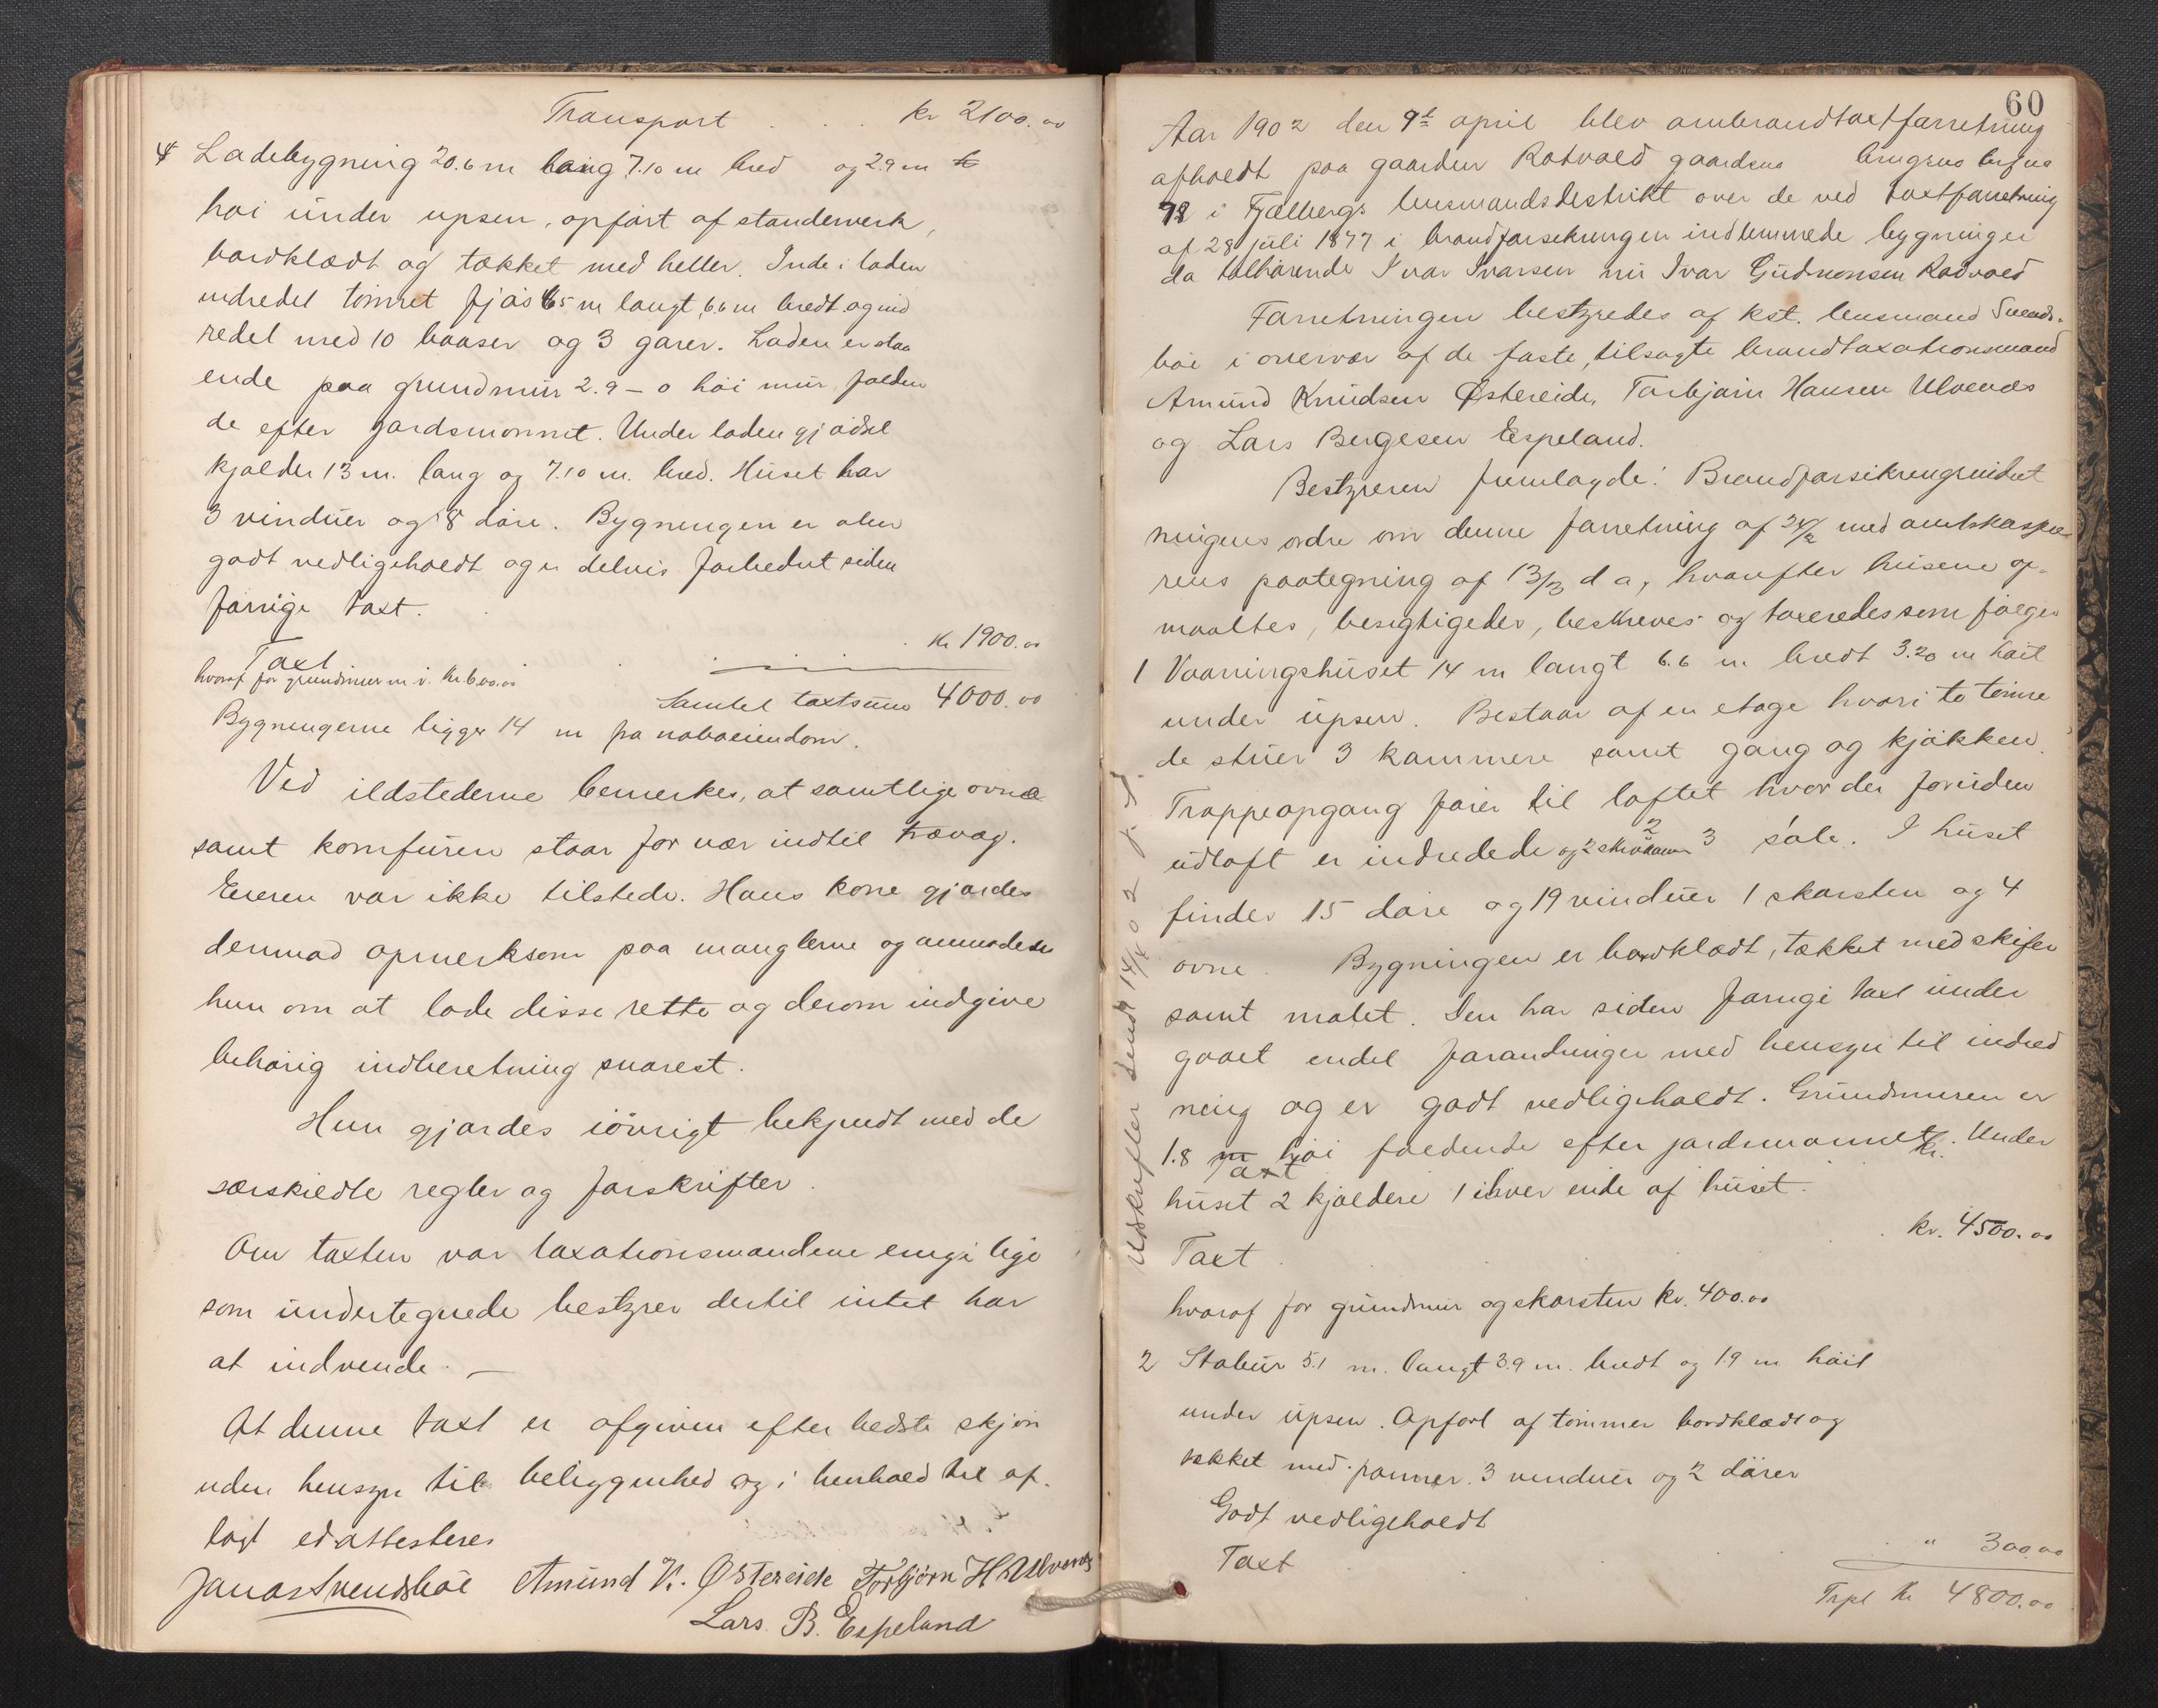 Transport . . . kr 2100.00
4 Ladebygning 20.6 m lang 7.10 m bred og 2.9 m
høi under upsen, opført af standerverk,
bordklædt og tækket med heller. Inde i laden
indredet tømret fjøs 6.5 m langt, 6.6 m bredt og ind
redet med 10 baaser og 3 garer. Laden er staa
ende paa grundmur 2.9 – 0 høi mur falden
de efter jordsmonnet. Under laden gjødsel
kjælder 13 m. lang og 7.10 m. bred. Huset har
3 vinduer og 8 døre. Bygningen er aben
godt vedligeholdt og er delvis forbedret siden
forrige taxt.
Taxt . . . kr 1900.00
hvoraf for grundmuren kr 600.00
Samlet taxtsum 4000.00
Bygningerne ligger 14 m fra naboeiendom.
Ved ildstederne bemerkes, at samtlige ovne
samt komfuren staar for nær indtil trævæg.
Eieren var ikke tilstede. Hans kone gjordes
dermed opmerksom paa manglerne og anmodede
hun om at lade disse rette og derom indgive
behørig indberetning snarest.
Hun gjordes iøvrigt bekjendt med de
særskildte regler og forskrifter.
Om taxten var taxationsmændene enige lige
som undertegnede bestyrer dertil intet har
at indvende. –
At denne taxt er afgiven efter bedste skjøn
uden hensyn til beliggenhed og i henhold til af-
lagt ed attesteres
Jonas Svendsbøe Amund K. Østereide Torbjørn H. Ulvenes
Lars B. Espeland
60
Aar 1902 den 9de april blev ombrandtaxtforretning
afholdt paa gaarden Rødvold gaardens brugsno
i Fjælbergs lensmandsdistrikt over de ved taxtforretning
af 28 juli 1877 i brandforsekrungen indlemmede bygninger
da tilhørende Ivar Ivarsen nu Ivar Gudmonsen Rødvold
Forretningen bestyredes af kst. lensmand Svends-
bøe i overvær af de faste, tilsagte brandtaxationsmænd
Amund Knudsen Østereide, Torbjørn Hansen Ulvenes
og Lars Bergesen Espeland.
Bestyreren fremlagde: Brandforsikrengsindret
ningens ordre om denne forretning af 24/2 med amtskasse
rens paategning af 13/3 d a, hvorefter husene op-
maaltes, besigtigedes, beskreves og taxeredes som følger
1 Vaaningshuset 14 m langt 6.6 m bredt 3.20 m høit
under upsen. Bestaar af en etage hvori to tømre
de stuer 3 kammere samt gang og kjøkken.
Trappeopgang fører til loftet hvor der foruden
udloft er indredede og 2 skråkam 3 2 sale. I huset
findes 15 døre og 19 vinduer 1 skorsten og 4
ovne. Bygningen er bordklædt, tækket med skifer
samt malet. Den har siden forrige taxt under
gaaet endel forandringer med hensyn til indred
ning og er godt vedligeholdt. Grundmuren er
1.8 m høi faldende efter jordsmonnet. Under
Taxt kr.
huset 2 kjældere 1 i hver ende af huset.
Taxt . . . kr. 4500.00
hvoraf for grundmur og skorsten kr. 400.00
2 Stabur 5.1 m. langt 3.9 m. bredt og 1.9 m høit
under upsen. Opført af tømmer bordklædt og
tækket med panner. 3 vinduer og 2 dører
Godt vedligeholdt
Taxt . . . " 300.00
Trpt kr 4800.00
Udskrifter sendt 14/4 02 J. S.